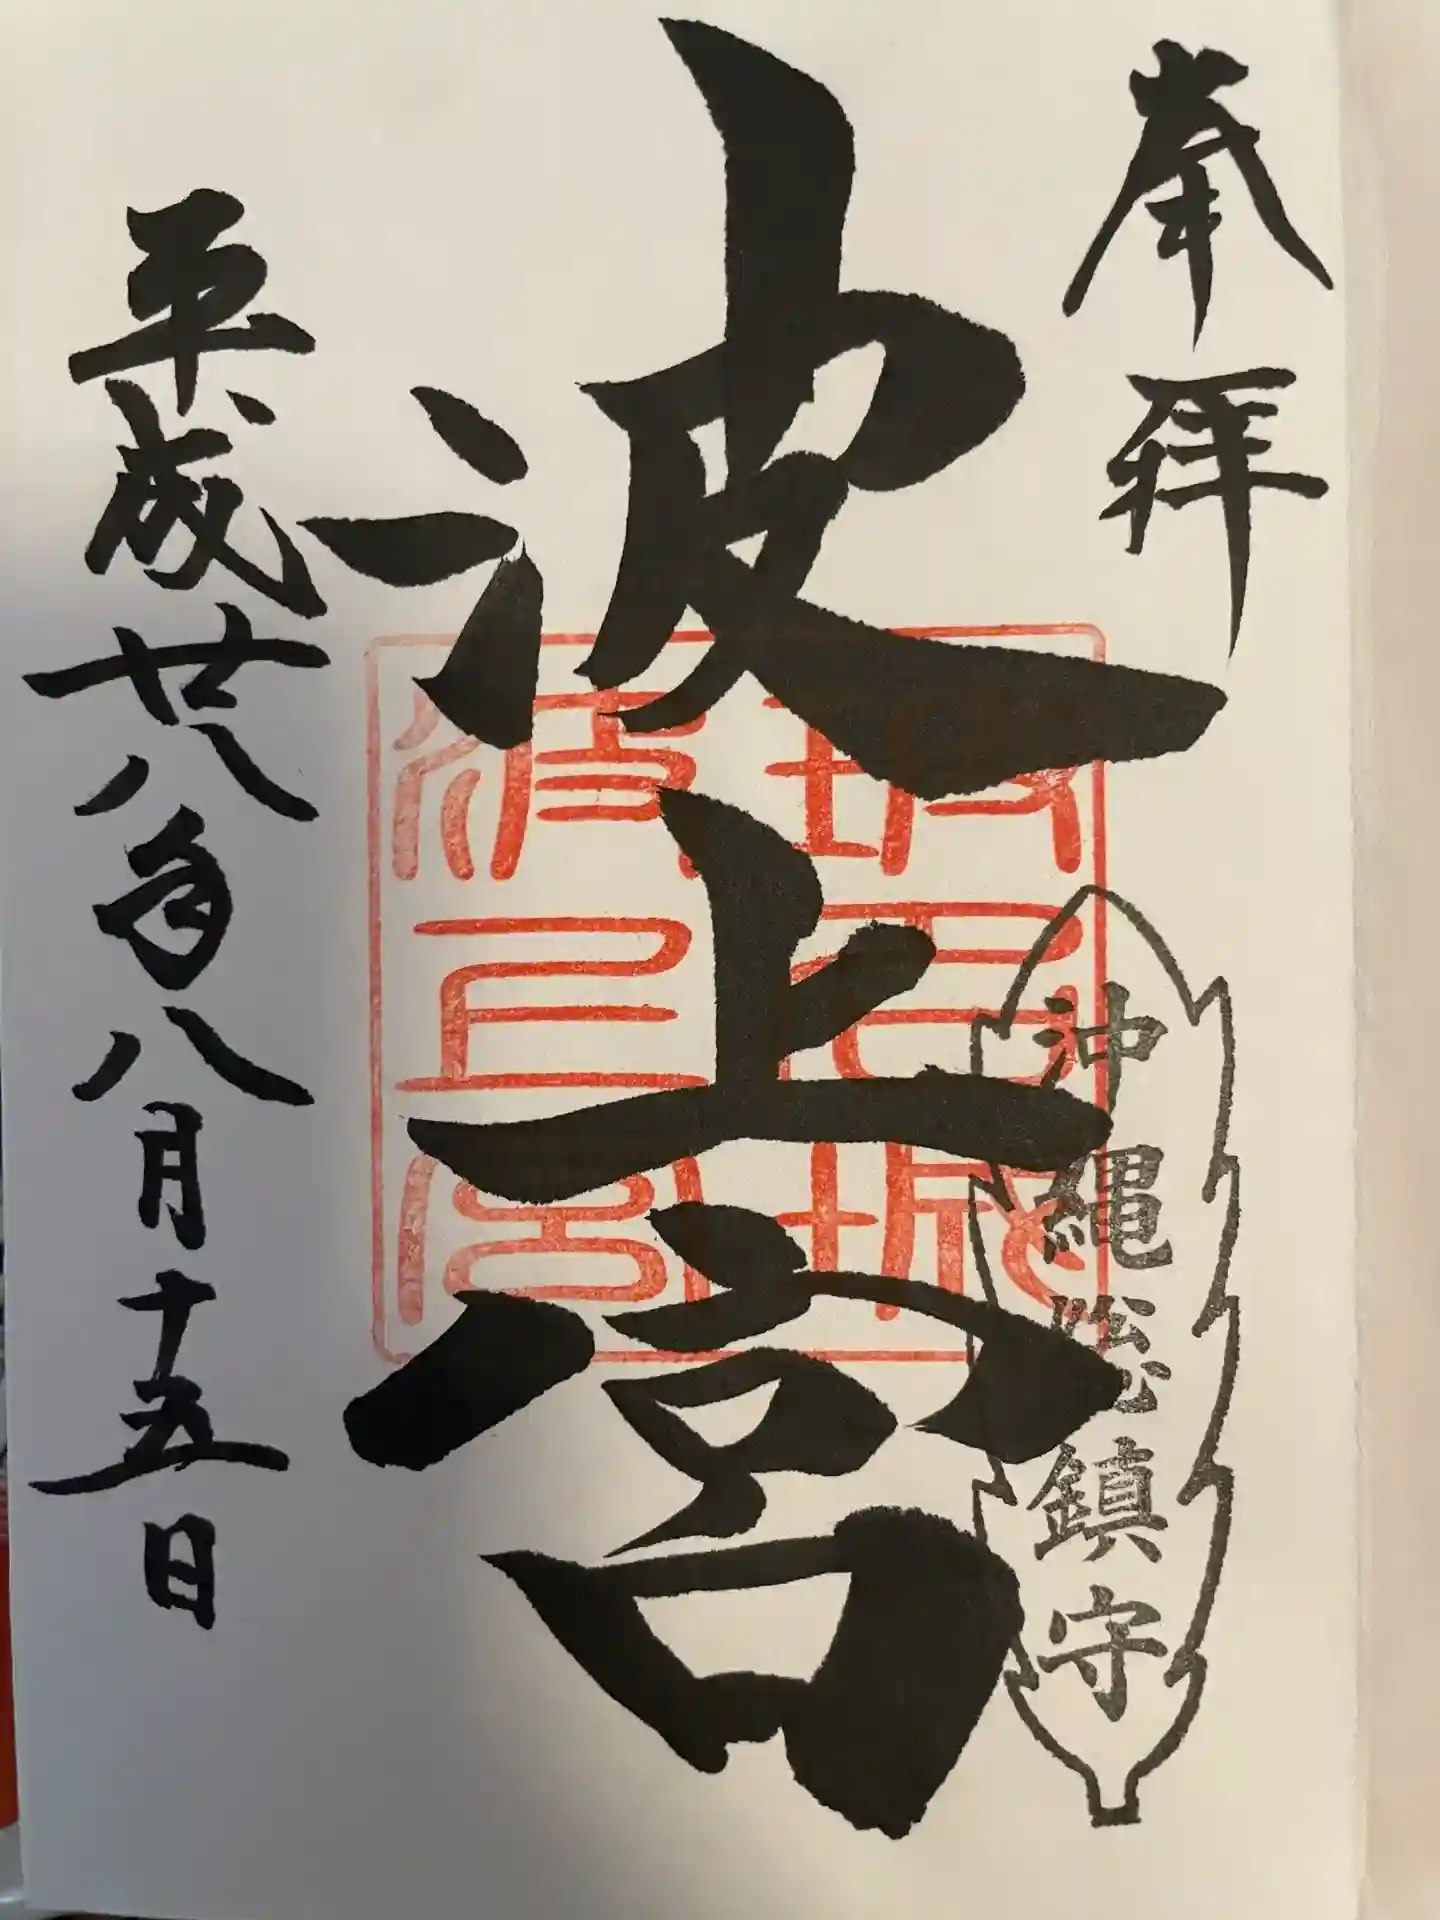 奉拝
沖縄総鎮守
波上宮
波上宮
平成廿八年八月十五日